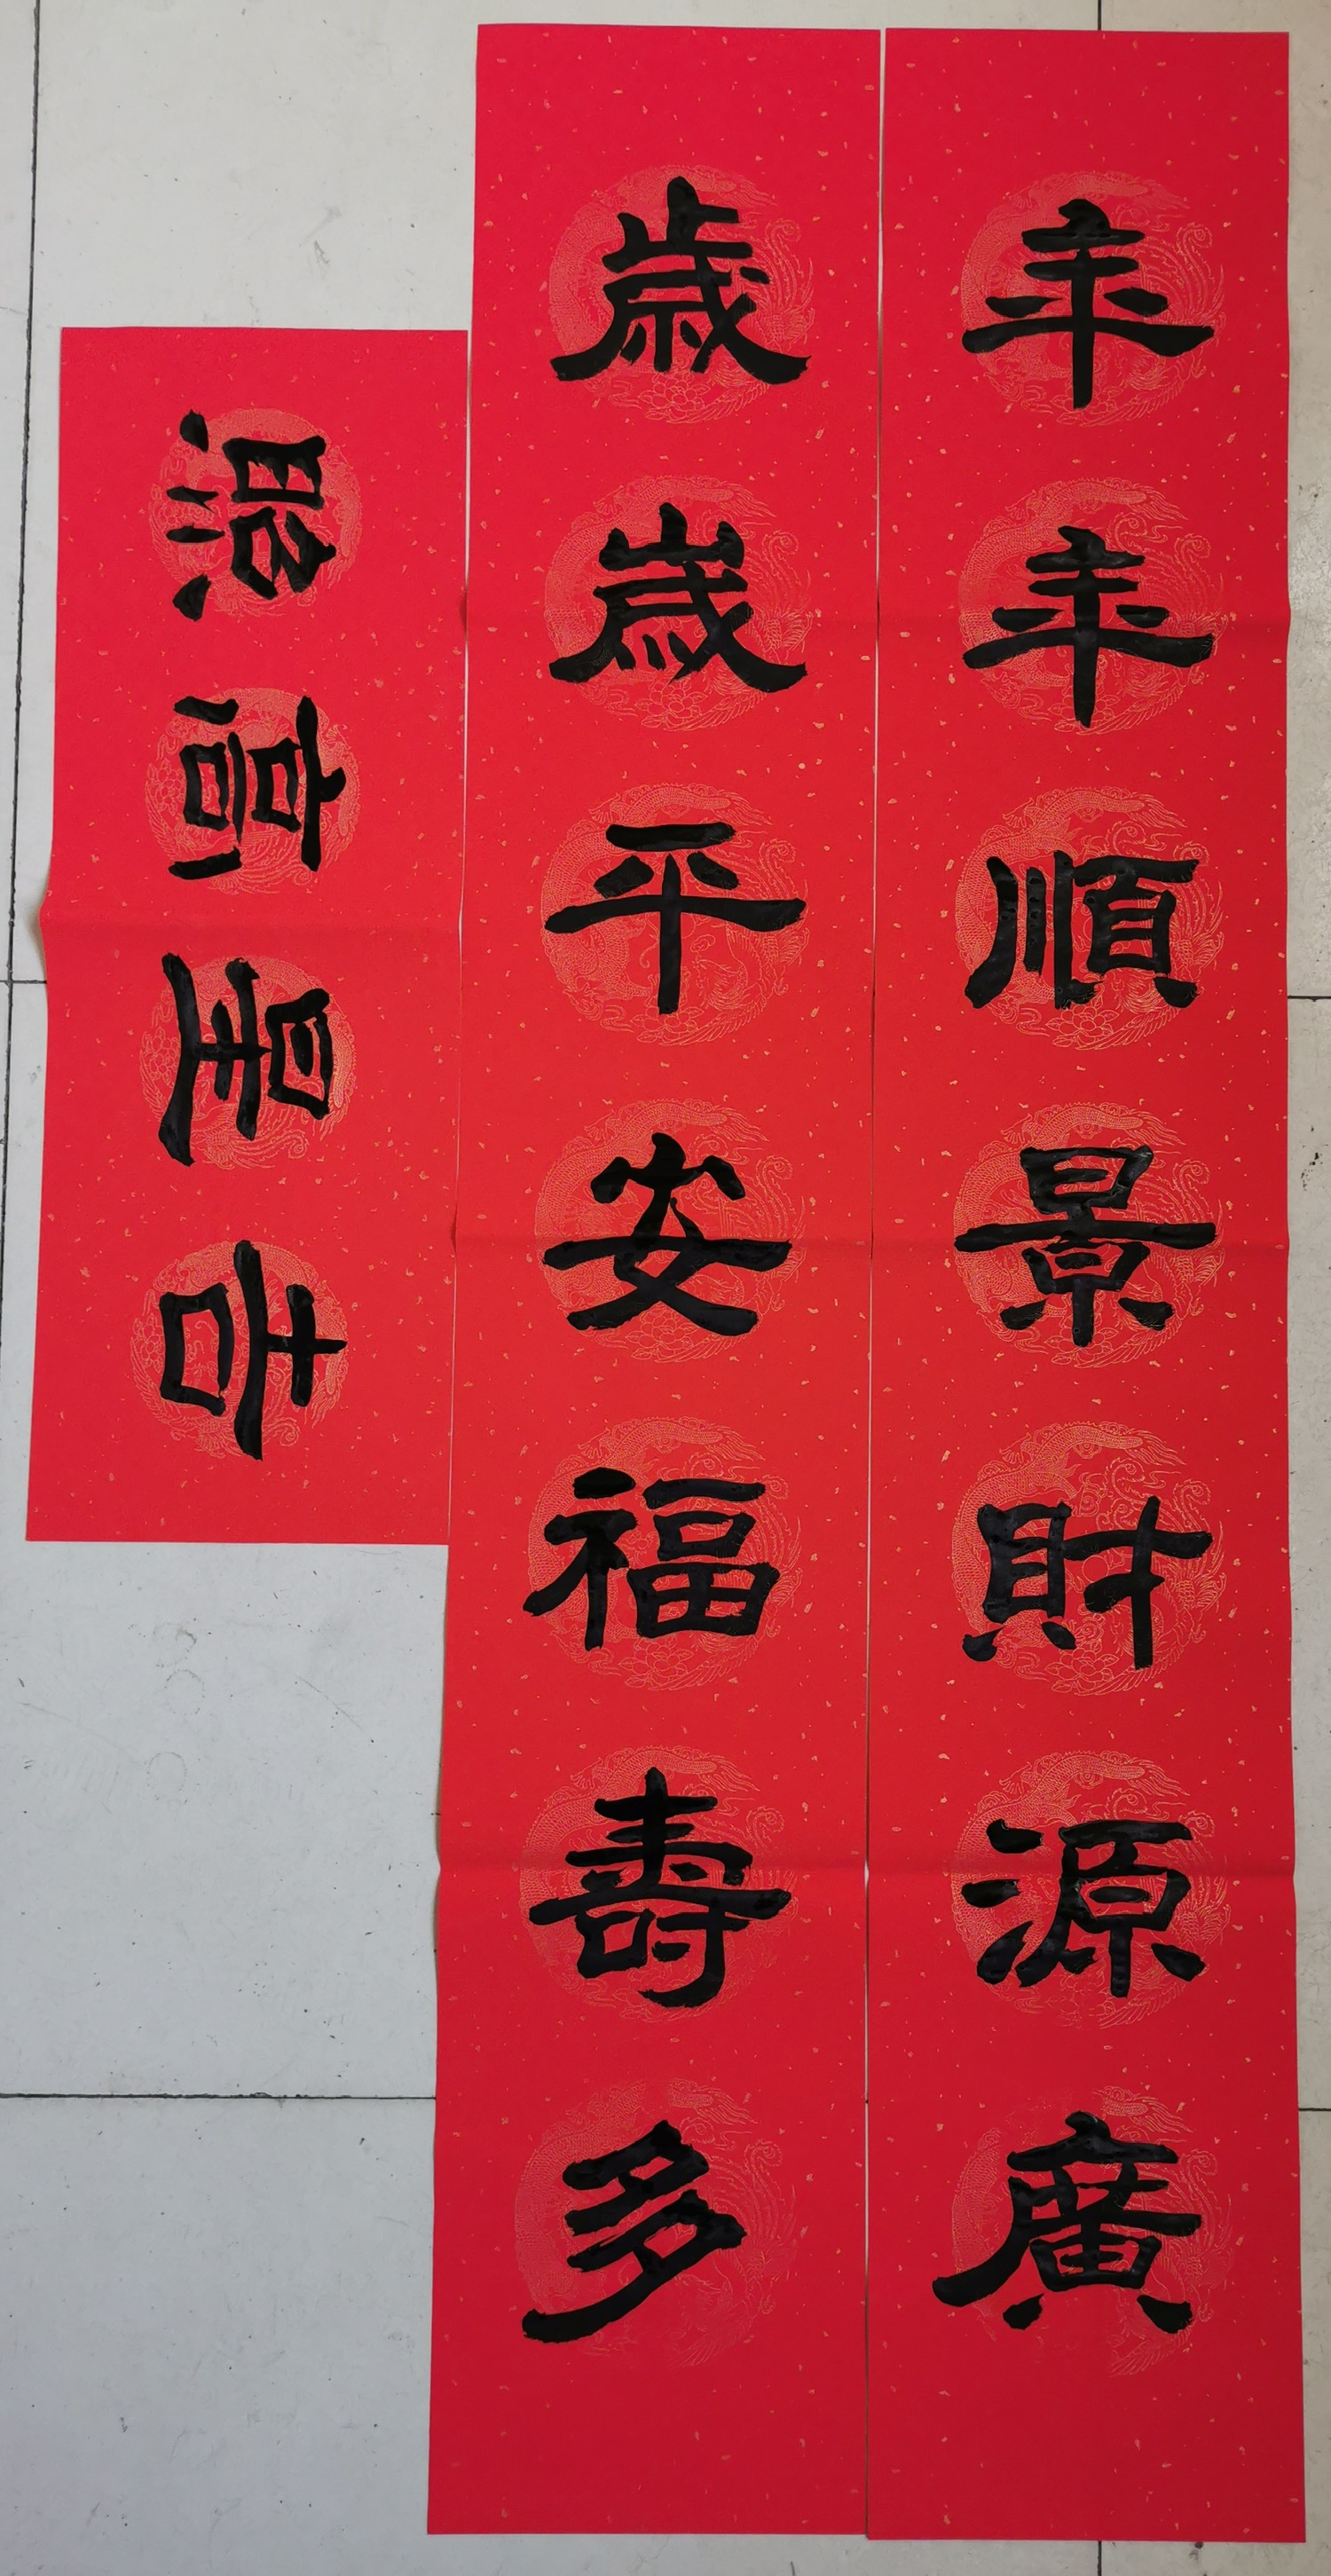 年年順景財源廣
歲歲平安福壽多
吉星高照